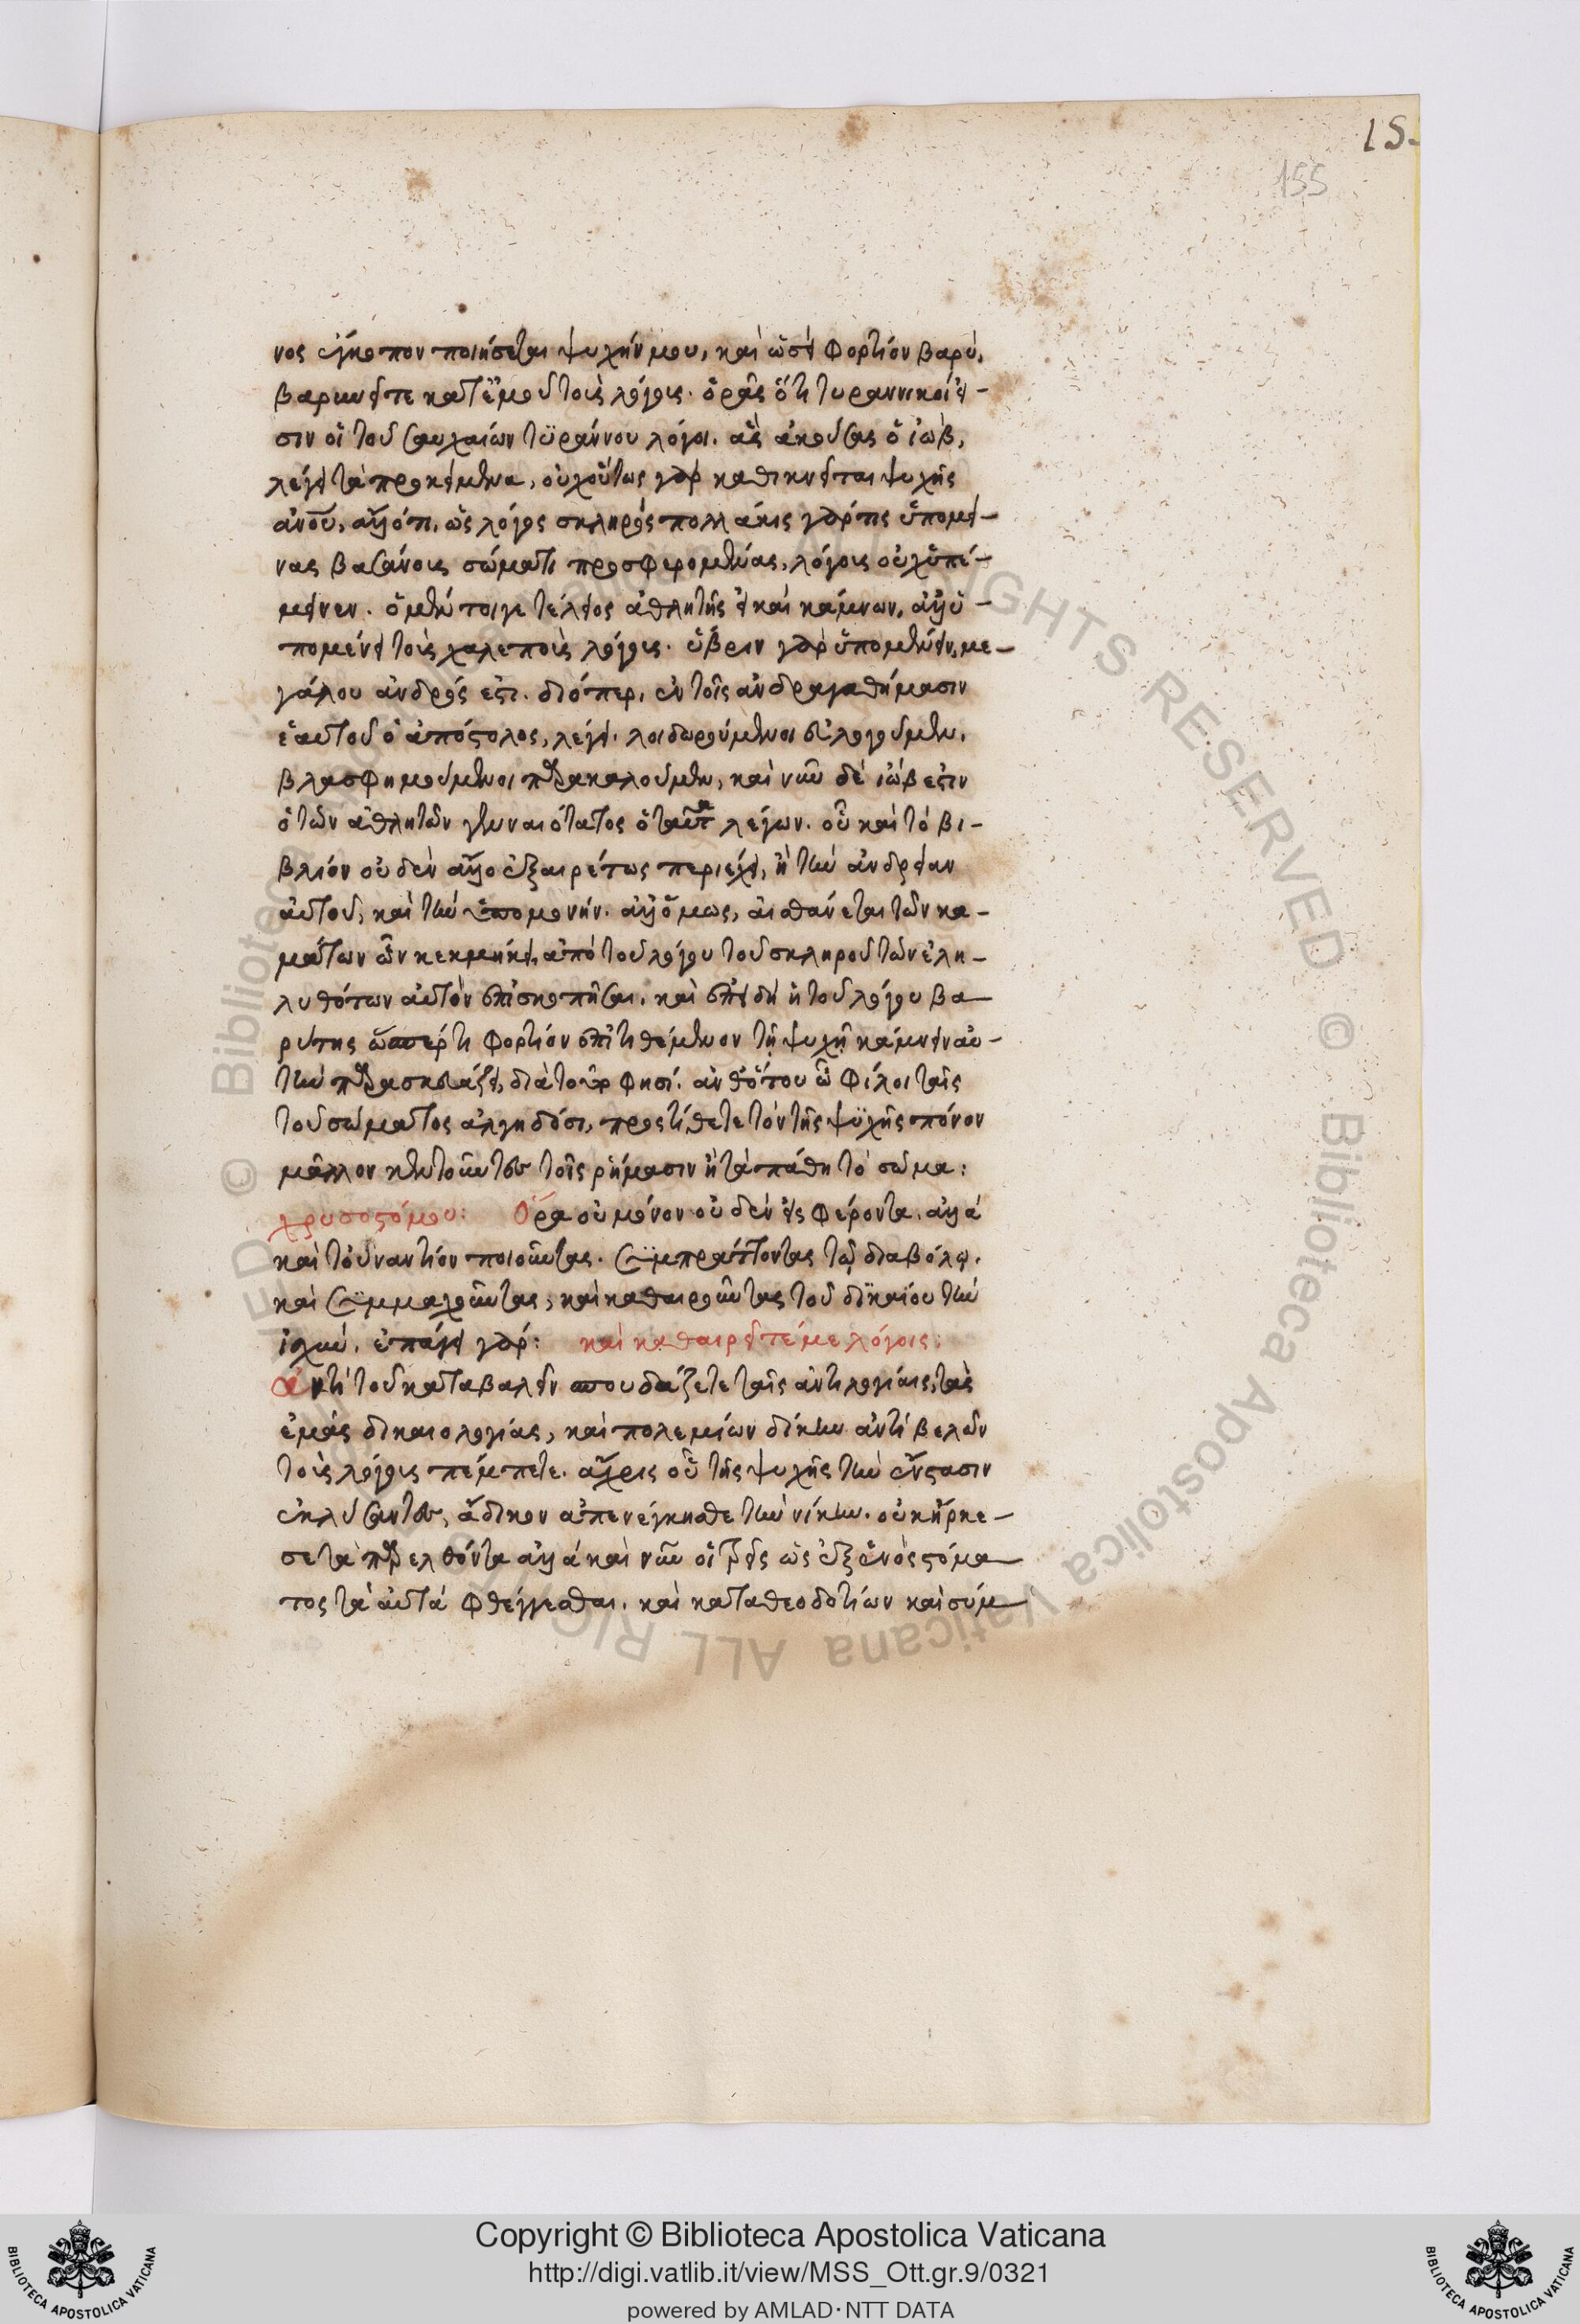 15.
155
νος ἔγκοπον ποιήσεται ψυχήν μου, καὶ ὡσεὶ φορτίον βαρύ,
βαρυνεῖτε κατ' ἐμοῦ τοῖς λόγοις. ὁρᾷς ὅτι τυραννικοί εἰ-
σιν οἱ τοῦ σαυχαίων τυράννου λόγοι. ἃς ἀκούσας ὁ ἰὼβ,
λέγει τὰ προκείμενα, οὐχ οὕτως γὰρ καθικνεῖται ψυχῆς
ἀνου, ἄλλό τι, ὡς λόγος σκληρός πολλάκις γάρ τις ὑπομεί-
νας βασάνοις σώματι προσφερομένας, λόγοις οὐχ ὑπέ-
μεινεν. ὁ μέν τοι γε τέλειος ἀθλητὴς εἰ καὶ κάμνων, ἀλλ' ὑ-
πομένει τοῖς χαλεποῖς λόγοις. ὕβριν γὰρ ὑπομένειν, με-
γάλου ἀνδρός ἐστι. διόπερ, ἐν τοῖς ἀνδραγαθήμασιν
ἑαυτοῦ ὁ ἀπόστολος, λέγει. λοιδωρούμενοι εὐλογοῦμεν,
βλασφημούμενοι παρακαλοῦμεν, καὶ νῦν δὲ ἰώβ ἐστιν
ὁ τῶν ἀθλητῶν γενναιότατος ὁ ταῦτα λέγων. οὗ καὶ τὸ βι-
βλίον οὐδὲν ἄλλο ἐξαιρέτως περιέχει, ἢ τὴν ἀνδρείαν
αὐτοῦ, καὶ τὴν ὑπομονήν. ἀλλ' ὅμως, αἰσθάνεται τῶν κα-
μάτων ὧν κεκμηκει, ἀπὸ τοῦ λόγου τοῦ σκληροῦ τῶν ἐλη-
λυθότων αὐτὸν ἐπισκοπῆσαι. καὶ ἐπειδὴ ἡ τοῦ λόγου βα
ρύτης ὥσπέρ τι φορτίον ἐπιτιθέμενον τῇ ψυχῇ κάμνειν αὐ-
τὴν παρασκευάζει, διὰ τοῦτό φησι. ἀνθ' ὅτου ὦ φίλοι ταῖς
τοῦ σώματος ἀλγηδόσι, προστίθετε τὸν τῆς ψυχῆς πόνον
μᾶλλον κεντοῦντες τοῖς ῥήμασιν ἢ τὰ πάθη τὸ σῶμα:
χρυσοστόμου: Ὅρα οὐ μόνον οὐδὲν εἰσφέροντα, ἀλλὰ
καὶ τοὐναντίον ποιοῦντας. συμπράττοντας τῷ διαβόλῳ.
καὶ συμμαχοῦντας, καὶ καθαιροῦντας τοῦ δικαίου τὴν
ἰσχύν. ἐπάγει γάρ: καὶ καθαιρεῖτέ με λόγοις:
ἀντὶ τοῦ καταβαλεῖν σπουδάζετε ταῖς ἀντιλογίαις, τὰς
ἐμὰς δικαιολογίας, καὶ πολεμίων δίκην ἀντὶ βελῶν
τοῖς λόγοις πέμπετε. ἄχρις οὗ τῆς ψυχῆς τὴν ἔνστασιν
ἐκλύσαντες, ἄδικον ἀπενέγκησθε τὴν νίκην. οὐκ ἤρκε-
σε τὰ παρελθόντα ἀλλὰ καὶ νῦν οἱ τρεῖς ὡς ἐξ ἑνὸς στόμα
τος τὰ αὐτὰ φθέγγεσθαι. καὶ κατὰ θεοδοτίων καὶ σύμ
Copyright © Biblioteca Apostolica Vaticana
http://digi.vatlib.it/view/MSS_Ott.gr.9/0321
powered by AMLAD · NTT DATA
BIBLIOTECA APOSTOLICA VATICANA
BIBLIOTECA APOSTOLICA VATICANA
© Biblioteca Apostolica Vaticana ALL RIGHTS RESERVED
© Biblioteca Apostolica Vaticana ALL RIGHTS RESERVED